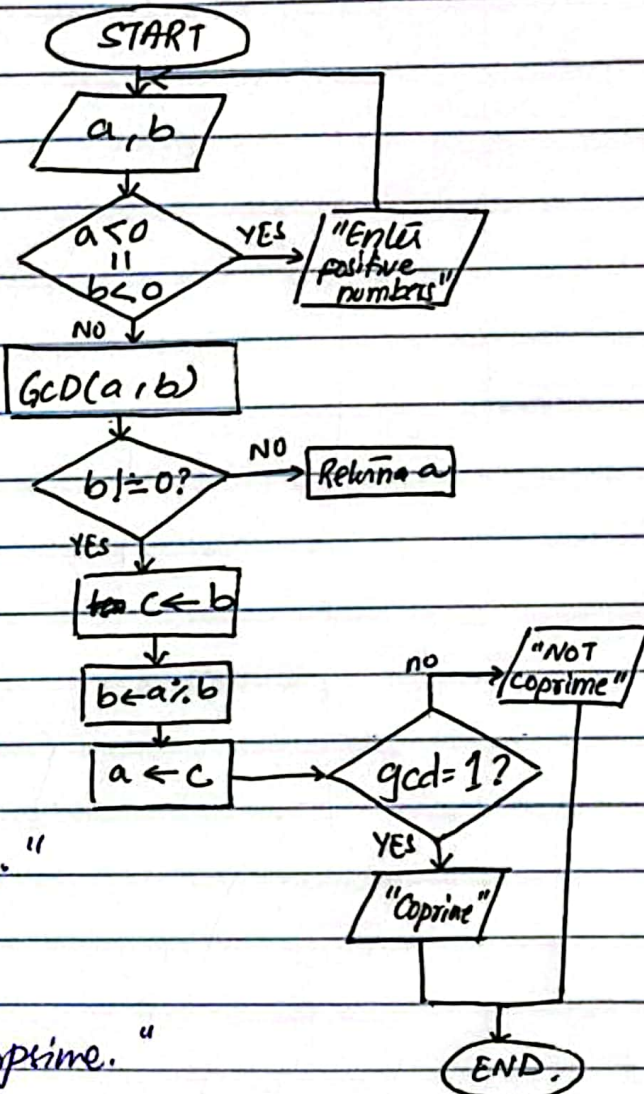 START
a, b
a<0
||
b<0
YES
"Enter
positive
numbers"
NO
GCD(a, b)
b!=0?
NO
Return a
YES
C ← b
b ← a % b
a ← c
gcd=1?
no
"NOT
coprime"
YES
"Coprime"
."
prime."
END.